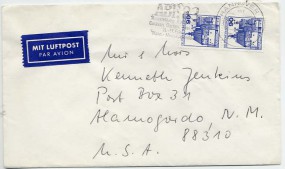 MIT LUFTPOST
PAR AVION
90
90
Mr & Mrs
Kenneth Jenkins
Post Box 31
Alamogordo N. M.
88310
U. S. A.